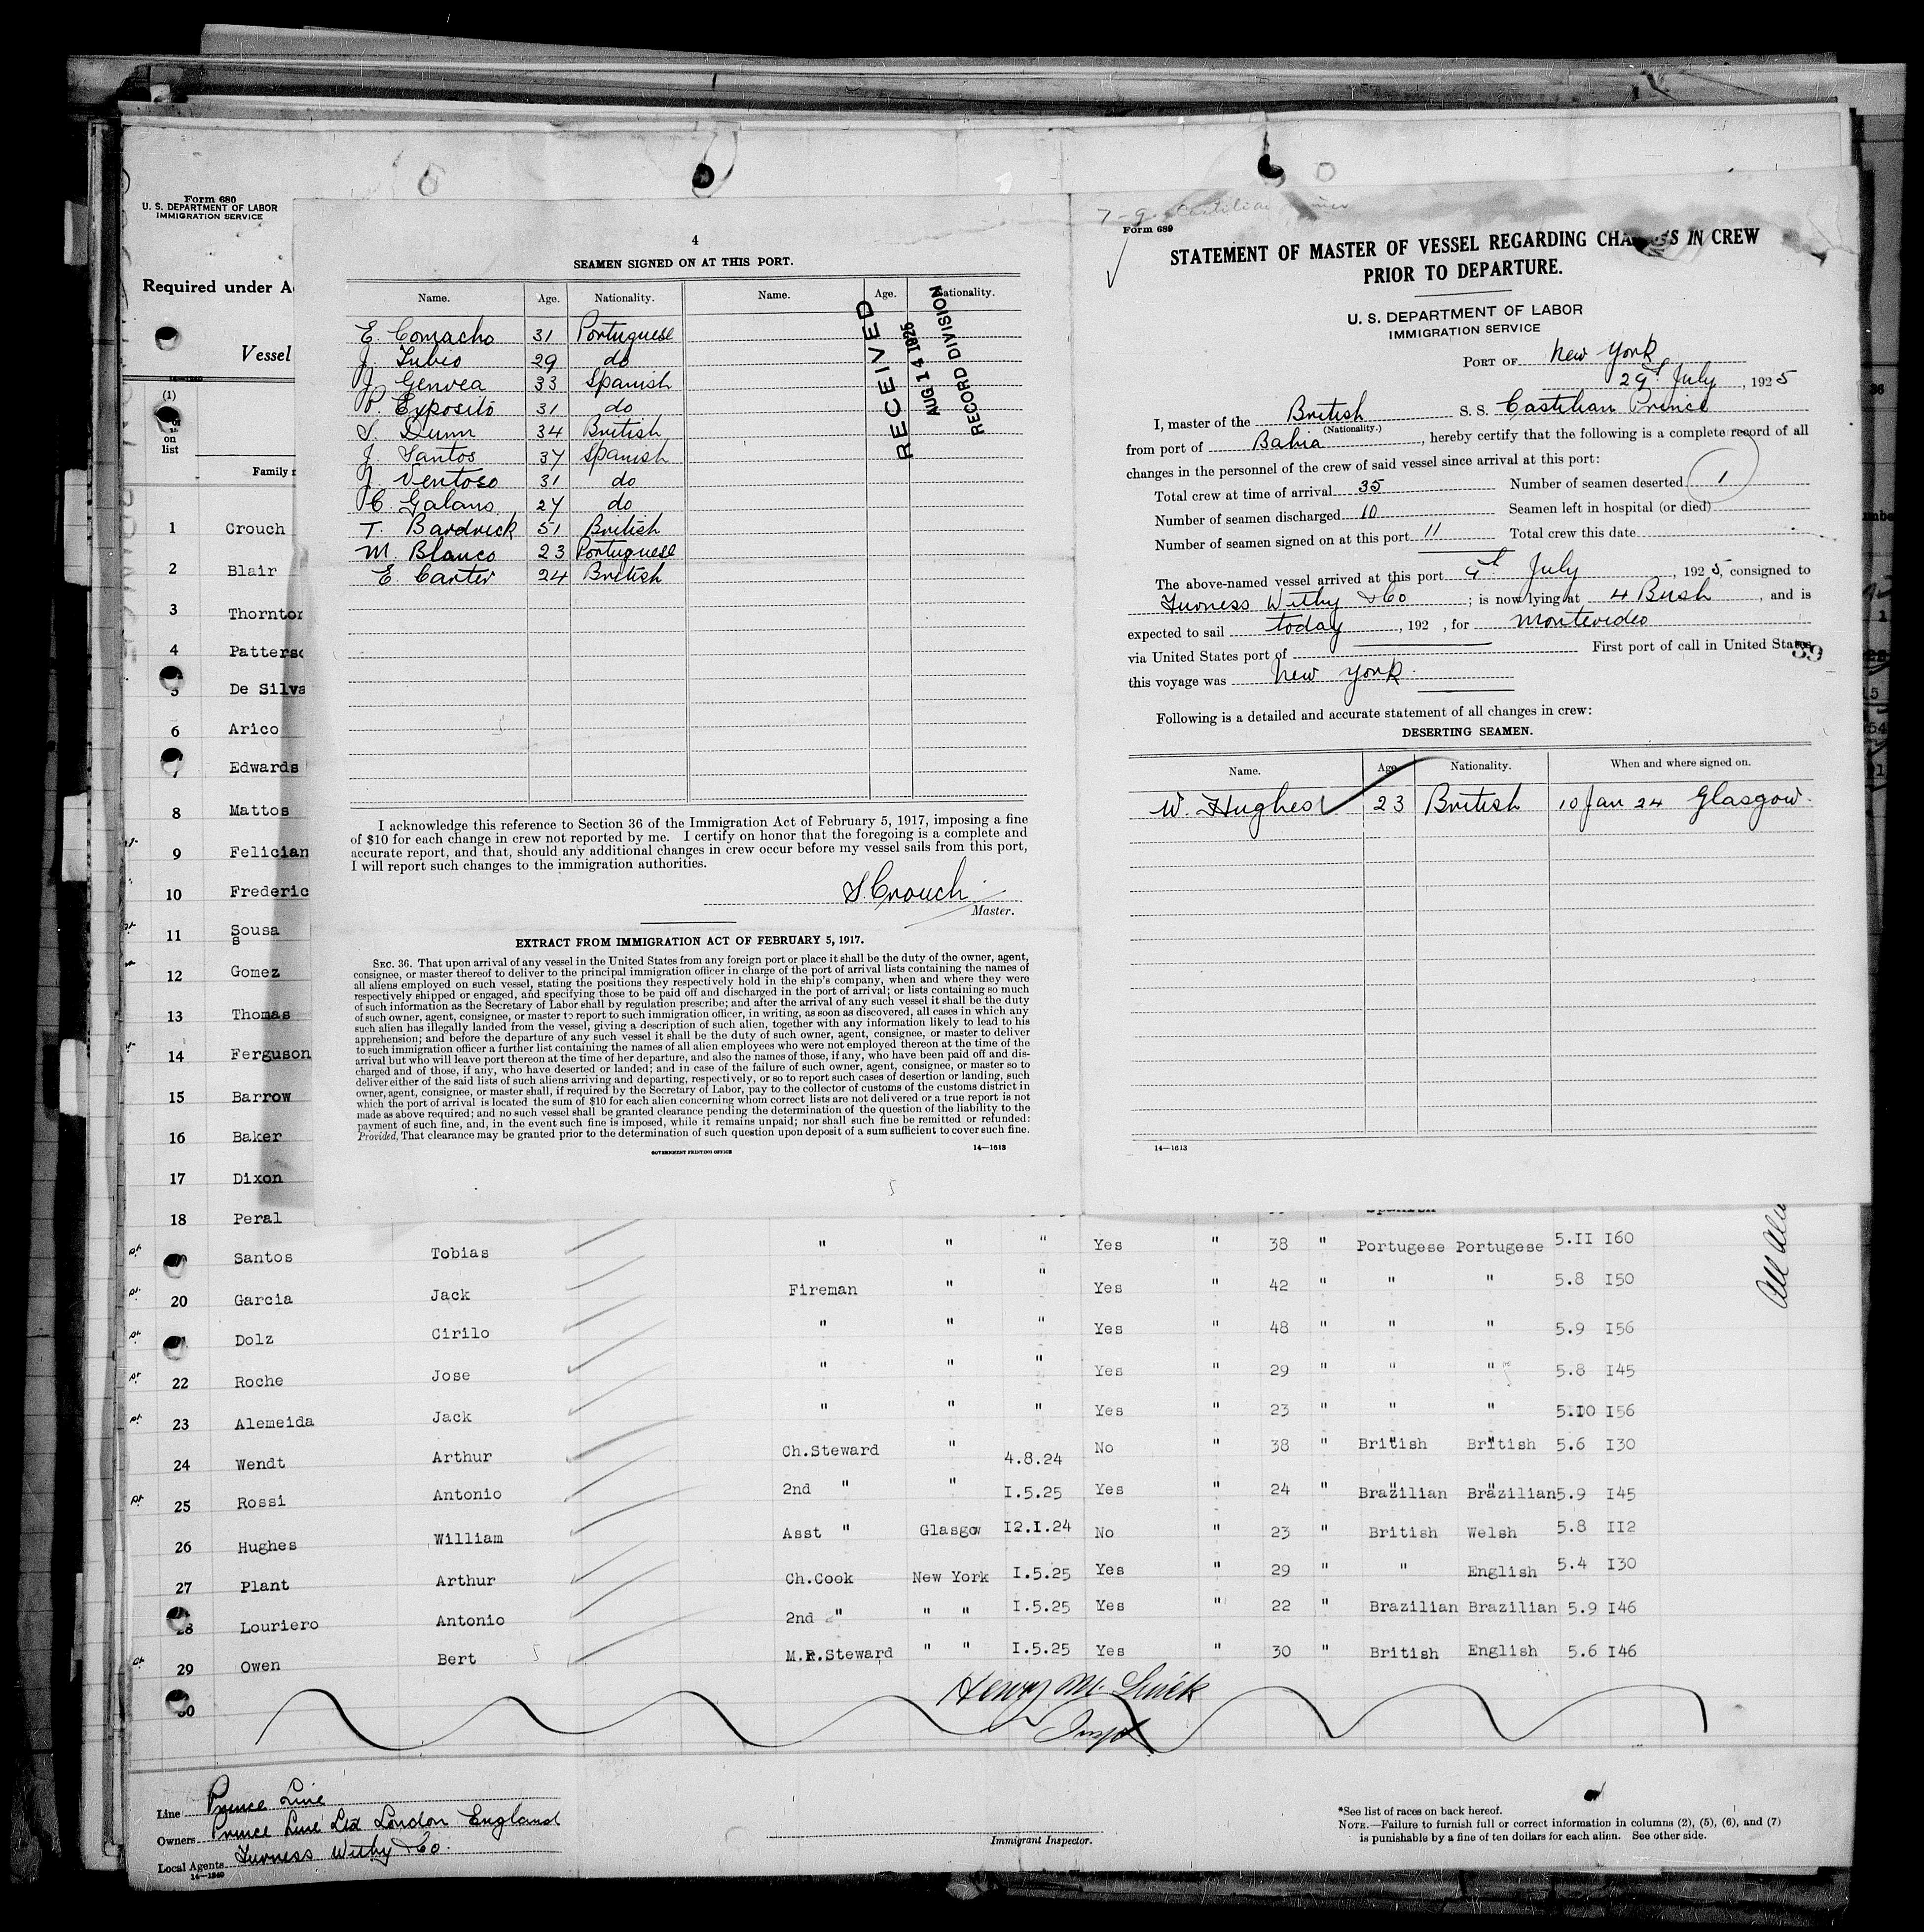 Form 680
U. S. DEPARTMENT OF LABOR
IMMIGRATION SERVICE
Required under A
Vessel
(1)
on
list
Family
1 Crouch
2 Blair
3 Thornton
4 Patterso
5 De Silva
6 Arico
Edwards
8 Mattos
9 Felician
10 Frederic
11 Sousa
s
12 Gomez
13 Thomas
14 Ferguson
15 Barrow
16 Baker
17 Dixon
18 Peral
4
SEAMEN SIGNED ON AT THIS PORT.
Name. Age. Nationality. Name. Age. Nationality.
E. Comacho 31 Portuguese
J. Tubio 29 do
J. Genvea 33 Spanish
P. Exposito 31 do
S. Dunn 34 British
J. Santos 37 Spanish
J. Ventoso 31 do
C. Galans 27 do
T. Bardrick 51 British
M. Blanco 23 Portuguese
E Carter 24 British
RECEIVED
AUG 14 1925
RECORD DIVISION
I acknowledge this reference to Section 36 of the Immigration Act of February 5, 1917, imposing a fine
of $10 for each change in crew not reported by me. I certify on honor that the foregoing is a complete and
accurate report, and that, should any additional changes in crew occur before my vessel sails from this port,
I will report such changes to the immigration authorities.
S. Crouch
Master.
EXTRACT FROM IMMIGRATION ACT OF FEBRUARY 5, 1917.
SEC. 36. That upon arrival of any vessel in the United States from any foreign port or place it shall be the duty of the owner, agent,
consignee, or master thereof to deliver to the principal immigration officer in charge of the port of arrival lists containing the names of
all aliens employed on such vessel, stating the positions they respectively hold in the ship's company, when and where they were
respectively shipped or engaged, and specifying those to be paid off and discharged in the port of arrival; or lists containing so much
of such information as the Secretary of Labor shall by regulation prescribe; and after the arrival of any such vessel it shall be the duty
of such owner, agent, consignee, or master to report to such immigration officer, in writing, as soon as discovered, all cases in which any
such alien has illegally landed from the vessel, giving a description of such alien, together with any information likely to lead to his
apprehension; and before the departure of any such vessel it shall be the duty of such owner, agent, consignee, or master to deliver
to such immigration officer a further list containing the names of all alien employees who were not employed thereon at the time of the
arrival but who will leave port thereon at the time of her departure, and also the names of those, if any, who have been paid off and dis-
charged and of those, if any, who have deserted or landed; and in case of the failure of such owner, agent, consignee, or master so to
deliver either of the said lists of such aliens arriving and departing, respectively, or so to report such cases of desertion or landing, such
owner, agent, consignee, or master shall, if required by the Secretary of Labor, pay to the collector of customs of the customs district in
which the port of arrival is located the sum of $10 for each alien concerning whom correct lists are not delivered or a true report is not
made as above required; and no such vessel shall be granted clearance pending the determination of the question of the liability to the
payment of such fine, and, in the event such fine is imposed, while it remains unpaid; nor shall such fine be remitted or refunded:
Provided, That clearance may be granted prior to the determination of such question upon deposit of a sum sufficient to cover such fine.
GOVERNMENT PRINTING OFFICE 14—1613
7-9 Castilian
Form 689
STATEMENT OF MASTER OF VESSEL REGARDING CHANGES IN CREW
PRIOR TO DEPARTURE.
U. S. DEPARTMENT OF LABOR
IMMIGRATION SERVICE
PORT OF New York
29th July, 1925
I, master of the British S. S. Castilian Prince
(Nationality.)
from port of Bahia, hereby certify that the following is a complete record of all
changes in the personnel of the crew of said vessel since arrival at this port:
Total crew at time of arrival 35 Number of seamen deserted 1
Number of seamen discharged 10 Seamen left in hospital (or died)
Number of seamen signed on at this port 11 Total crew this date
The above-named vessel arrived at this port 9th July, 1925, consigned to
Furness Withy & Co; is now lying at 4 Bush, and is
expected to sail today, 192 , for Montevideo
via United States port of First port of call in United States
39
this voyage was New York.
Following is a detailed and accurate statement of all changes in crew:
DESERTING SEAMEN.
Name. Age. Nationality. When and where signed on.
W. Hughes 23 British 10 Jan 24 Glasgow.
14—1613
Santos Tobias " " " Yes " 38 " Portugese Portugese 5.II I60
20 Garcia Jack Fireman " " Yes " 42 " " " 5.8 I50
Dolz Cirilo " " " Yes " 48 " " " 5.9 I56
22 Roche Jose " " " Yes " 29 " " " 5.8 I45
23 Alemeida Jack " " " Yes " 23 " " " 5.I0 I56
24 Wendt Arthur Ch.Steward " 4.8.24 No " 38 " British British 5.6 I30
25 Rossi Antonio 2nd " " I.5.25 Yes " 24 " Brazilian Brazilian 5.9 I45
26 Hughes William Asst " Glasgow I2.I.24 No " 23 " British Welsh 5.8 II2
27 Plant Arthur Ch.Cook New York I.5.25 Yes " 29 " " English 5.4 I30
28 Louriero Antonio 2nd " " " I.5.25 Yes " 22 " Brazilian Brazilian 5.9 I46
29 Owen Bert M.R.Steward " " I.5.25 Yes " 30 " British English 5.6 I46
30
Henry M.
Insp
Line Prince Line
Owners Prince Line Ltd London England
Local Agents Furness Withy & Co.
14—1240
Immigrant Inspector.
*See list of races on back hereof.
NOTE.—Failure to furnish full or correct information in columns (2), (5), (6), and (7)
is punishable by a fine of ten dollars for each alien. See other side.